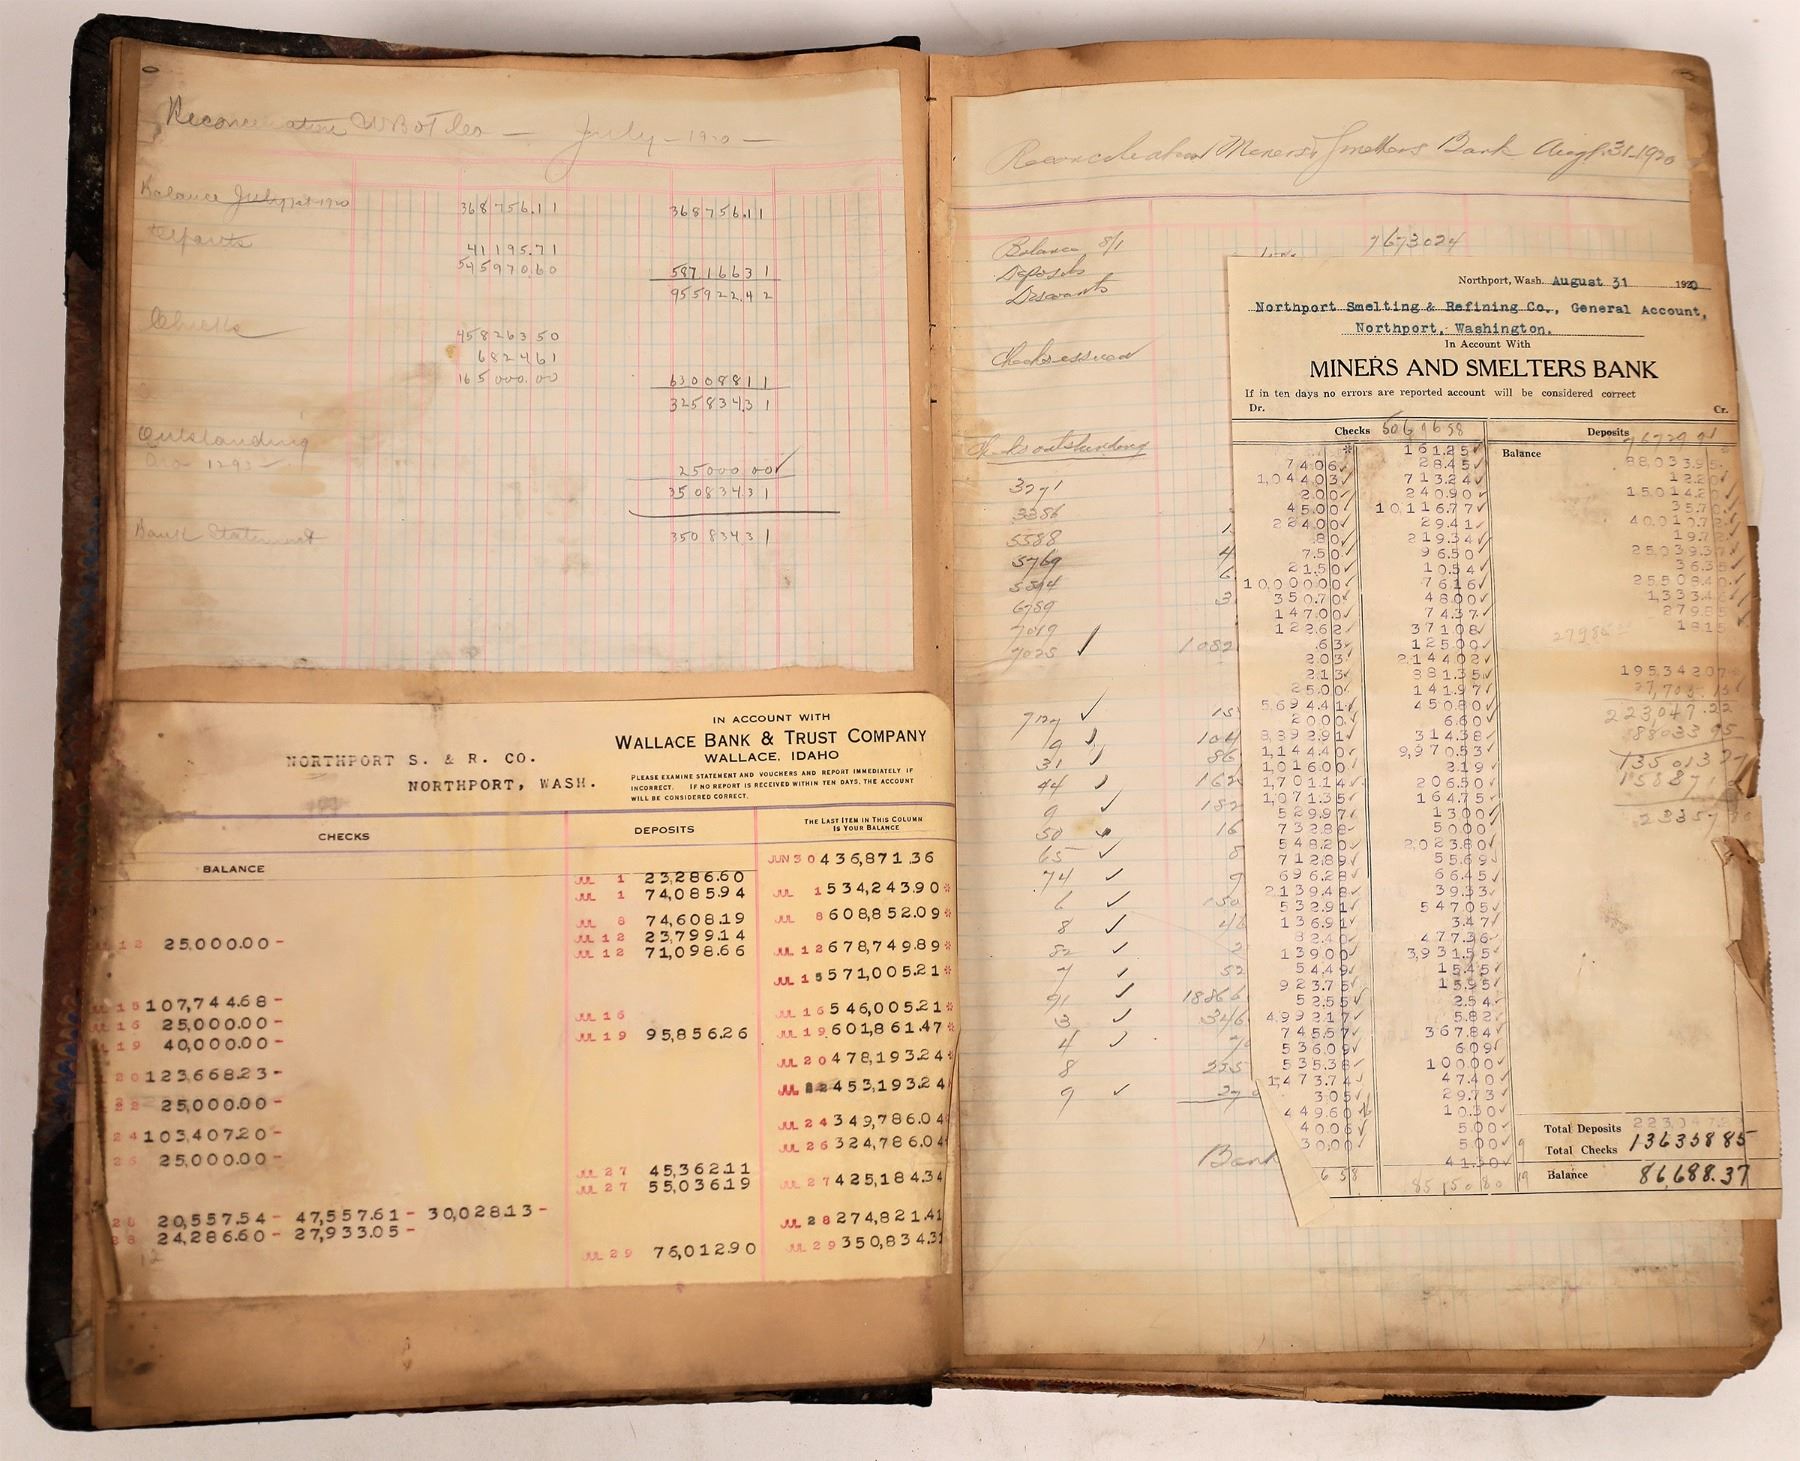 Reconciliation W B & T Co — July — 1920 —
Balance July 1st 1920 368756.11 368756.11
Deposits 41195.71
545970.60 587166.31
955922.42
Checks 458263.50
6824.61
165000.00 630088.11
325834.31
Outstanding
25000.00✓
350834.31
Bank Statement 350834.31
IN ACCOUNT WITH
WALLACE BANK & TRUST COMPANY
WALLACE, IDAHO
NORTHPORT S. & R. CO.
NORTHPORT, WASH.
PLEASE EXAMINE STATEMENT AND VOUCHERS AND REPORT IMMEDIATELY IF
INCORRECT. IF NO REPORT IS RECEIVED WITHIN TEN DAYS, THE ACCOUNT
WILL BE CONSIDERED CORRECT.
CHECKS DEPOSITS THE LAST ITEM IN THIS COLUMN
IS YOUR BALANCE
BALANCE JUN 30 436,871.36
JUL 1 23,286.60
JUL 1 74,085.94 JUL 1 534,243.90*
JUL 8 74,608.19 JUL 8 608,852.09*
JUL 12 23,799.14
12 25,000.00- JUL 12 71,098.66 JUL 12 678,749.89*
JUL 15 571,005.21*
15 107,744.68-
16 25,000.00- JUL 16 JUL 16 546,005.21*
19 40,000.00- JUL 19 95,856.26 JUL 19 601,861.47*
20 123,668.23- JUL 20 478,193.24*
22 25,000.00- JUL 22 453,193.24
24 103,407.20- JUL 24 349,786.04
26 25,000.00- JUL 26 324,786.04
JUL 27 45,362.11
JUL 27 55,036.19 JUL 27 425,184.34
28 20,557.54- 47,557.61- 30,028.13- JUL 28 274,821.41
28 24,286.60- 27,933.05-
JUL 29 76,012.90 JUL 29 350,834.31
12
Reconciliation Miners & Smelters Bank Aug. 31-1920
Balance 8/1 7673024
Deposits
Discounts
Checks issued
Checks outstanding
3271
3386
5588
5769
5594
6759
7019
7025 ✓ 1082
7127 ✓ 15
9 ✓ 104
31 ✓ 86
44 ✓ 162
9 ✓ 182
50 ✓ 16
65 ✓ 8
74 ✓ 9
6 ✓ 150
8 ✓ 46
82 ✓ 2
7 ✓ 52
91 ✓ 18866
3 ✓ 346
4 ✓ 70
8 225
9 ✓ 270
Bank
Northport, Wash. August 31 1920
Northport Smelting & Refining Co., General Account,
Northport, Washington.
In Account With
MINERS AND SMELTERS BANK
If in ten days no errors are reported account will be considered correct
Dr. Cr.
Checks Deposits
* 161.25✓ Balance
74.06✓ 28.45✓ 88,033.95
1,044.03✓ 713.24✓ 12.20
2.00✓ 240.90✓ 15,014.20
45.00✓ 10,116.77✓ 35.70
224.00✓ 29.41✓ 40,010.72
.80✓ 219.34✓ 19.72
7.50✓ 96.50✓ 25,039.37
21.50✓ 10.54✓ 36.35
10,000.00✓ 76.16✓ 25,508.40
350.70✓ 48.00✓ 1,333.46
147.00✓ 74.37✓ 279.85
122.62✓ 371.08✓ 18.15
.63✓ 125.00✓
2.03✓ 2,144.02✓
2.13✓ 881.35✓ 195,342.07
25.00✓ 141.97✓ 27,705.15
5,694.41✓ 450.80✓ 223,047.22
20.00✓ 6.60✓ 88033.95
8,392.91✓ 314.38✓
1,144.40✓ 9,970.53✓ 135013.27
1,016.00✓ 2.19✓
1,701.14✓ 206.50✓
1,071.35✓ 164.75✓
529.97✓ 13.00✓
732.88✓ 50.00✓
548.20✓ 2,023.80✓
712.89✓ 55.69✓
696.28✓ 66.45✓
2,139.48✓ 39.33✓
532.91✓ 547.05✓
136.91✓ 3.47✓
82.40✓ 477.36✓
139.00✓ 3,931.55✓
54.49✓ 15.45✓
923.75✓ 15.95✓
52.55✓ 2.54✓
4,992.17✓ 5.82✓
745.57✓ 367.84✓
536.09✓ 6.09✓
535.38✓ 100.00✓
1,473.74✓ 47.40✓
3.05✓ 29.73✓
449.60✓ 10.30✓
40.06✓ 5.00✓ Total Deposits
30.00✓ 5.00✓ Total Checks 136358.85
41.30✓ Balance 86,688.37